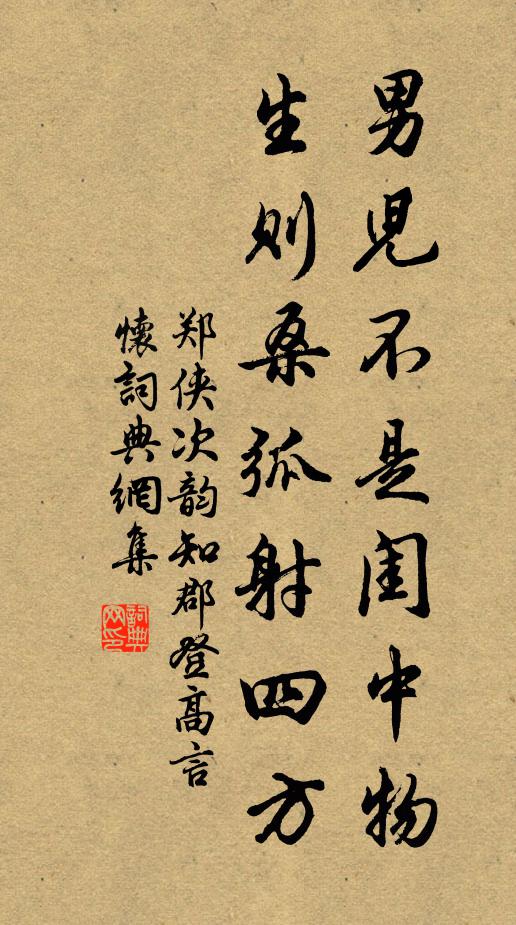 男児不是闺中物
生则桑弧射四方
郑侠次韵知郡登高言
懷詞典網集
詞典
网印